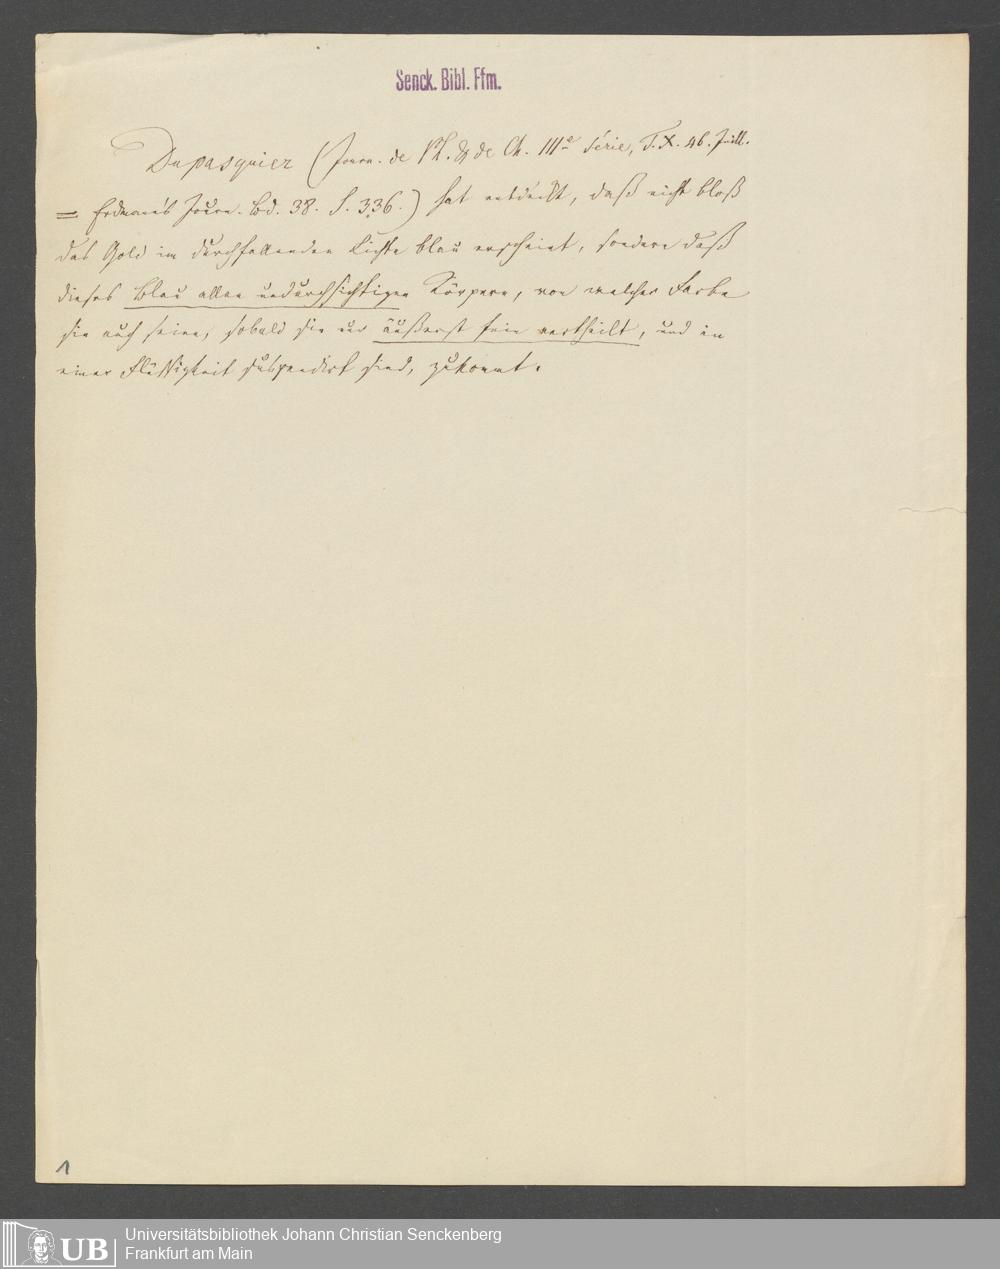 Senck. Bibl. Ffm.
Dupasquier (Journ. de Ph. & de Ch. IIIe Série, T. X. 46. Juill.
= Erdman's Journ. Bd. 38. S. 336.) hat entdeckt, daß nicht bloß
das Gold im durchfallenden Lichte blau erscheint, sondern daß
dieses blau allen undurchsichtigen Körpern, von welcher Farbe
sie auch seien, sobald sie nur äußerst fein vertheilt, und in
einer Flüssigkeit suspendirt sind, zukommt.
1
UB
Universitätsbibliothek Johann Christian Senckenberg
Frankfurt am Main